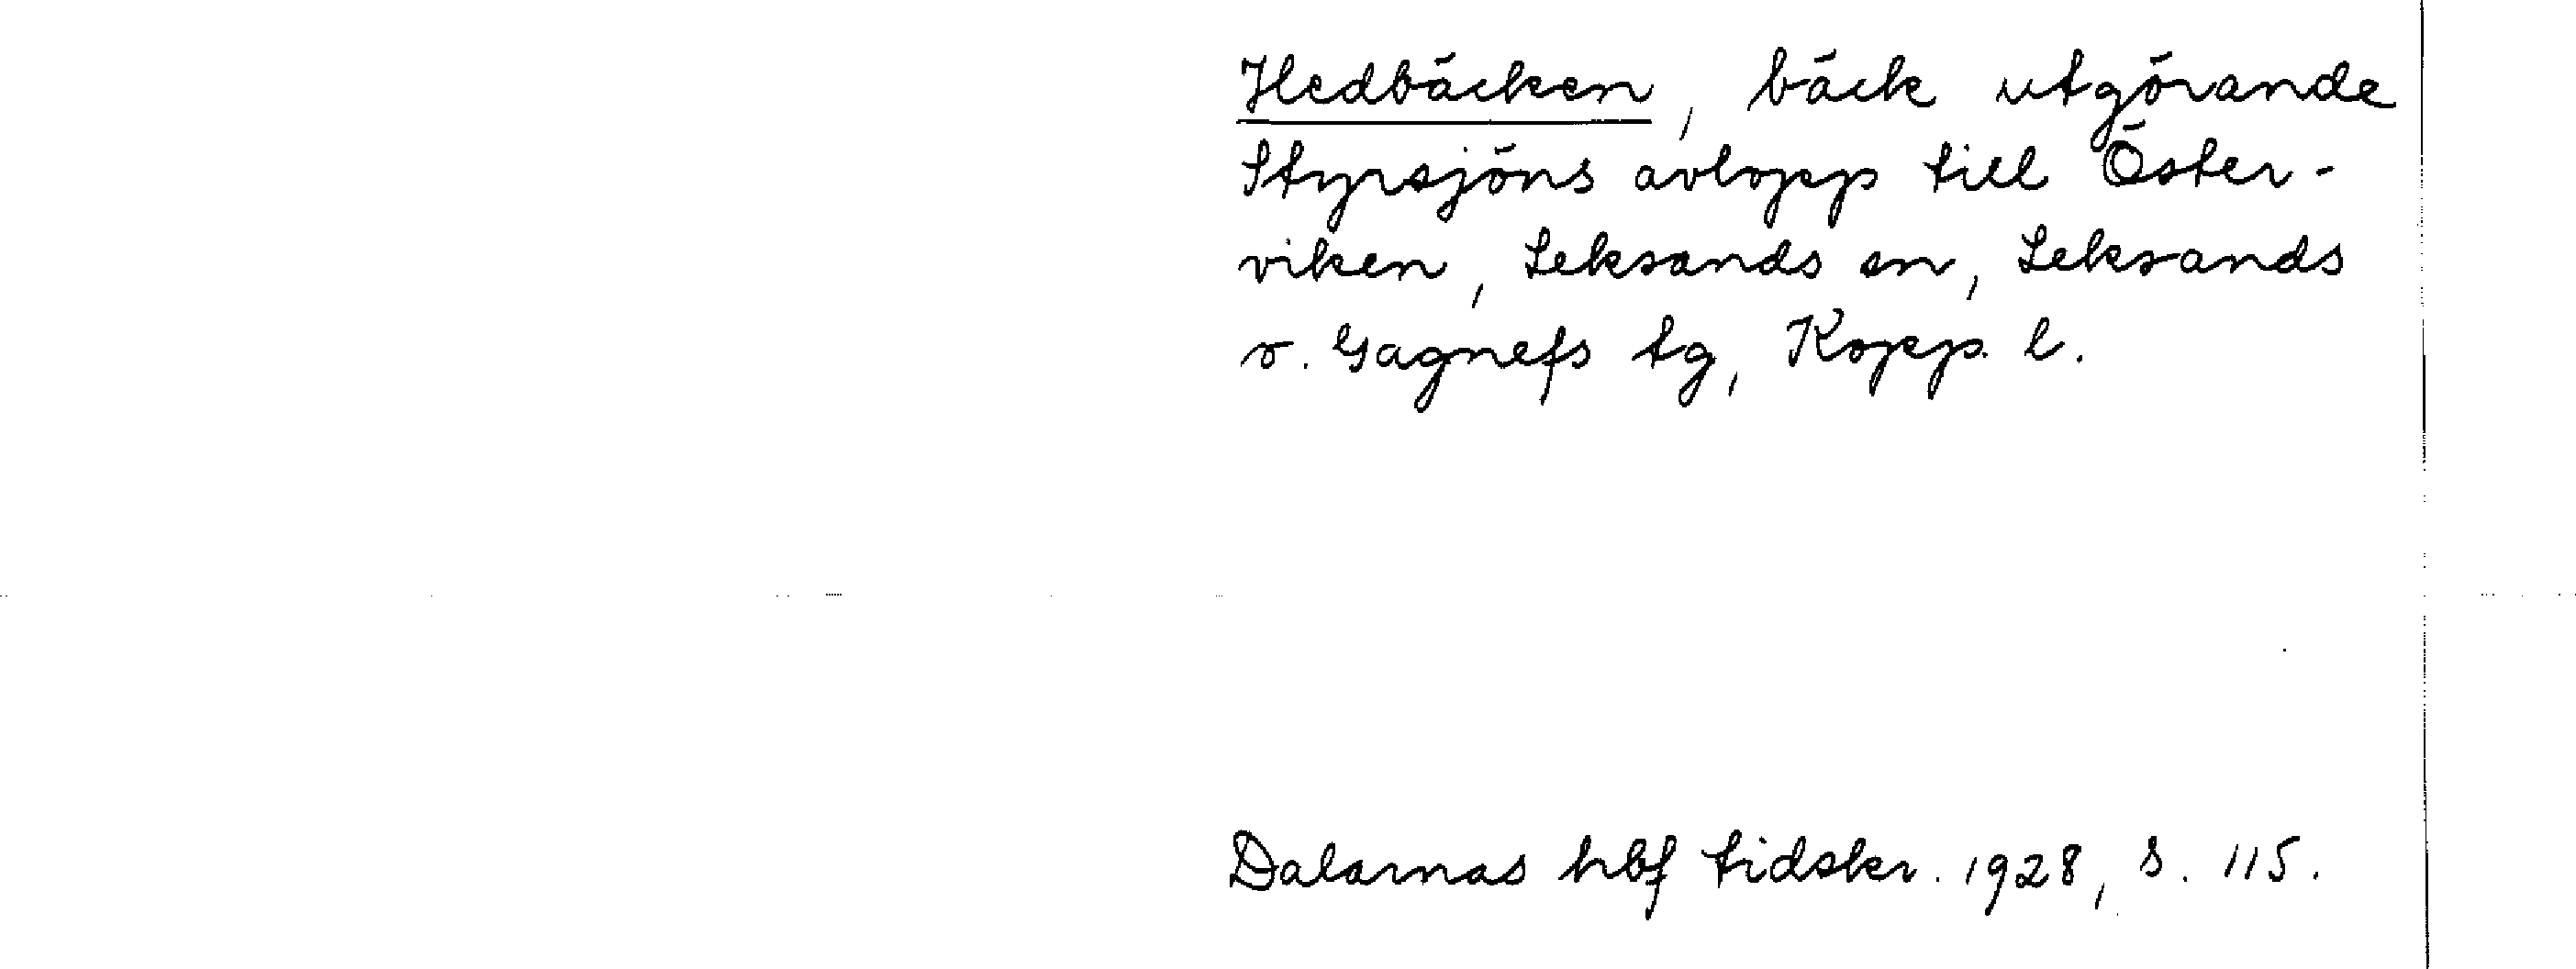 Hedbäcken, bäck utgörande
Styrsjöns avlopp till Öster-
viken, Leksands sn, Leksands
o. Gagnefs tg, Kopp. l.
Dalarnas hbf tidskr. 1928, s. 115.